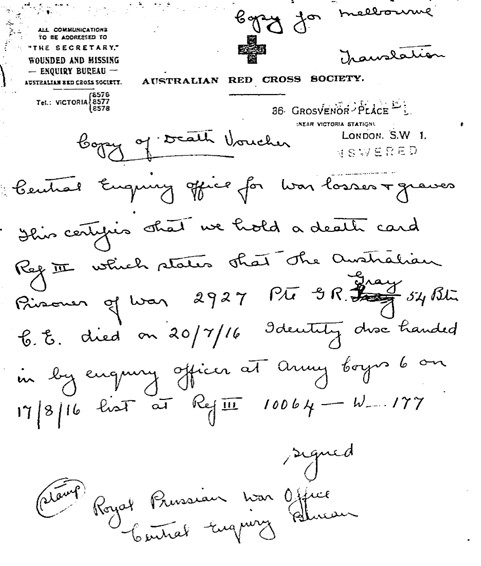 Copy for Melbourne
Translation
ALL COMMUNICATIONS
TO BE ADDRESSED TO
"THE SECRETARY,"
WOUNDED AND MISSING
— ENQUIRY BUREAU —
AUSTRALIAN RED CROSS SOCIETY.
Tel.: VICTORIA 8576
8577
8578
AUSTRALIAN RED CROSS SOCIETY.
36 GROSVENOR PLACE
(NEAR VICTORIA STATION)
LONDON. S.W 1.
Copy of Death Voucher
Central Enquiry office for War losses + graves
This certifies that we hold a death card
Ref III which states that the Australian
Gray
Prisoner of War 2927 Pte G R. 54 Btn
C.E. died on 20/7/16 Identity disc handed
in by enquiry officer at Army Corps 6 on
17/8/16 list at Ref III 10064 — W 177
signed
stamp
Royal Prussian War Office
Central Enquiry Bureau